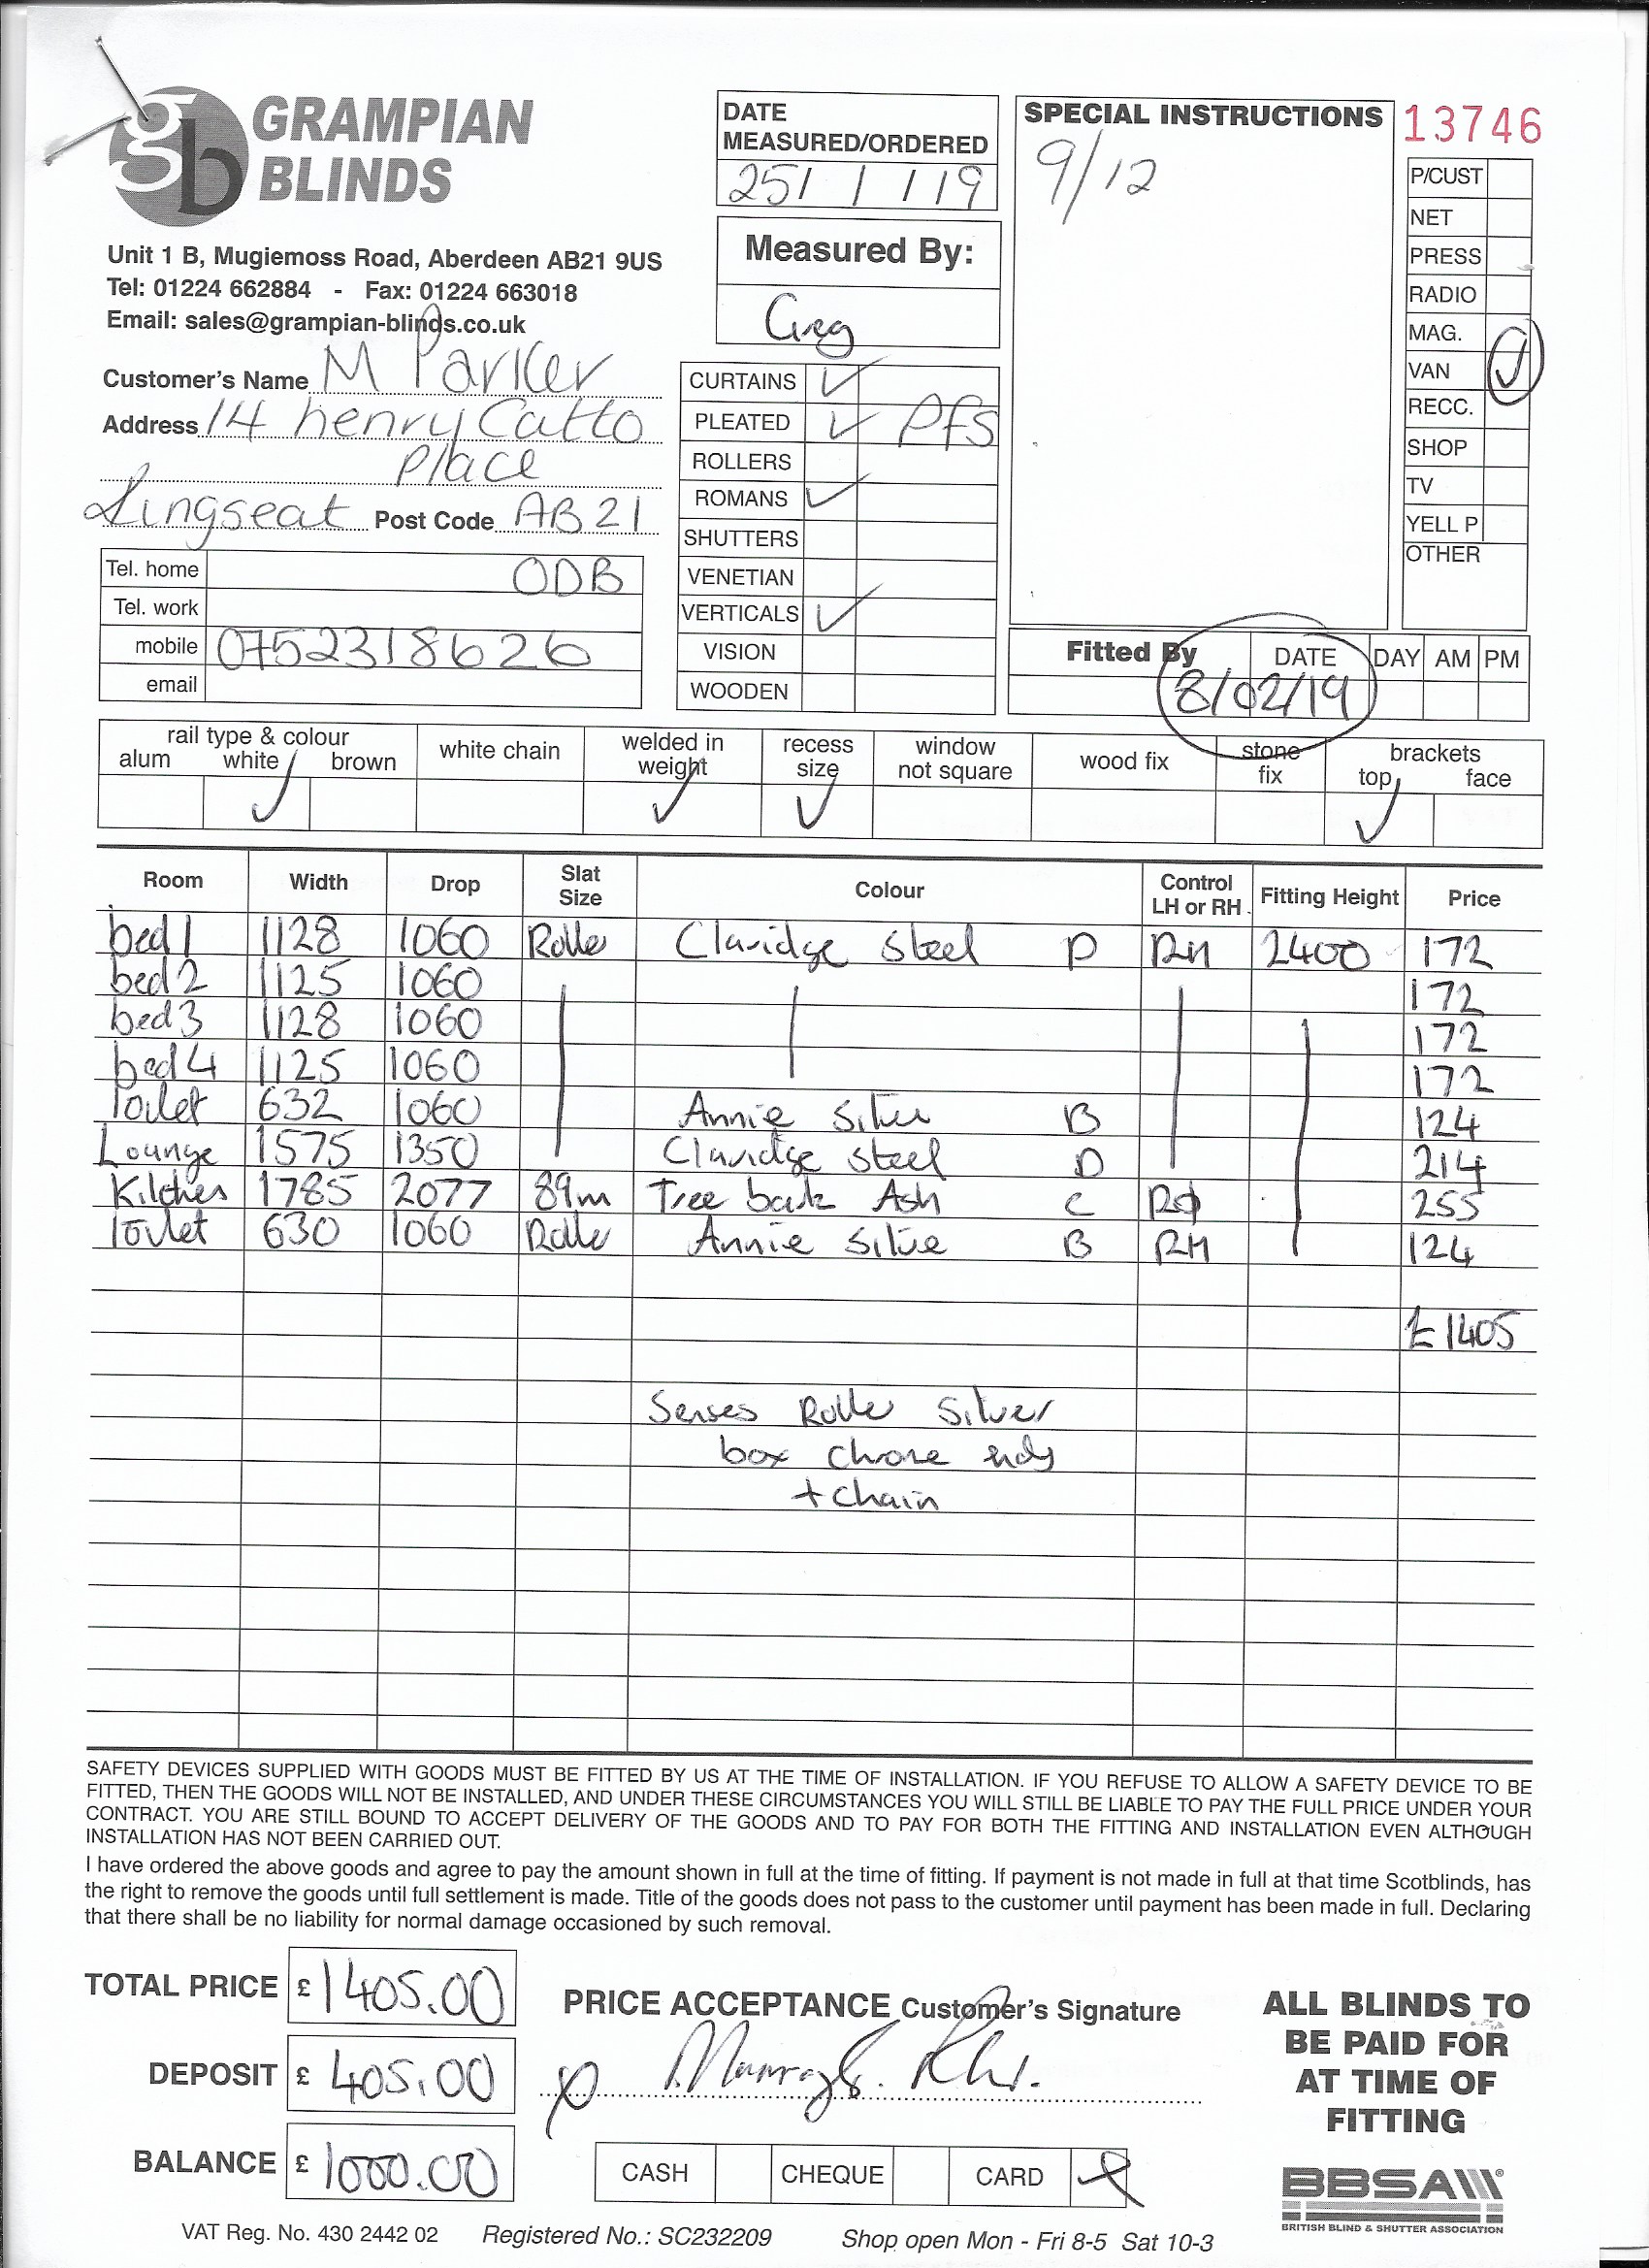 gb GRAMPIAN BLINDS
Unit 1 B, Mugiemoss Road, Aberdeen AB21 9US
Tel: 01224 662884 - Fax: 01224 663018
Email: sales@grampian-blinds.co.uk
Customer's Name M Parker
Address 14 henry Catto
place
Kingseat Post Code AB21
Tel. home ODB
Tel. work
mobile 0752318626
email
DATE MEASURED/ORDERED
25/ 1 /19
Measured By:
Greg
CURTAINS ✓
PLEATED ✓ Pfs
ROLLERS
ROMANS ✓
SHUTTERS
VENETIAN
VERTICALS ✓
VISION
WOODEN
SPECIAL INSTRUCTIONS
9/12
13746
P/CUST
NET
PRESS
RADIO
MAG.
VAN ✓
RECC.
SHOP
TV
YELL P
OTHER
Fitted By DATE DAY AM PM
8/02/19
rail type & colour white chain welded in weight recess size window not square wood fix stone fix brackets
alum white brown top face
✓ ✓ ✓ ✓
Room Width Drop Slat Size Colour Control LH or RH Fitting Height Price
bed 1 1128 1060 Roller Claridge Steel D RH 2400 172
bed 2 1125 1060 172
bed 3 1128 1060 172
bed 4 1125 1060 172
Toilet 632 1060 Annie Silver B 124
Lounge 1575 1350 Claridge Steel D 214
Kitchen 1785 2077 89m Tree bark Ash C 255
Toilet 630 1060 Roller Annie Silver B RH 124
£1405
Senses Roller Silver
box chrome ends
+ chain
SAFETY DEVICES SUPPLIED WITH GOODS MUST BE FITTED BY US AT THE TIME OF INSTALLATION. IF YOU REFUSE TO ALLOW A SAFETY DEVICE TO BE
FITTED, THEN THE GOODS WILL NOT BE INSTALLED, AND UNDER THESE CIRCUMSTANCES YOU WILL STILL BE LIABLE TO PAY THE FULL PRICE UNDER YOUR
CONTRACT. YOU ARE STILL BOUND TO ACCEPT DELIVERY OF THE GOODS AND TO PAY FOR BOTH THE FITTING AND INSTALLATION EVEN ALTHOUGH
INSTALLATION HAS NOT BEEN CARRIED OUT.
I have ordered the above goods and agree to pay the amount shown in full at the time of fitting. If payment is not made in full at that time Scotblinds, has
the right to remove the goods until full settlement is made. Title of the goods does not pass to the customer until payment has been made in full. Declaring
that there shall be no liability for normal damage occasioned by such removal.
TOTAL PRICE £ 1405.00
DEPOSIT £ 405.00
BALANCE £ 1000.00
PRICE ACCEPTANCE Customer's Signature
CASH CHEQUE CARD
ALL BLINDS TO
BE PAID FOR
AT TIME OF
FITTING
BBSA
BRITISH BLIND & SHUTTER ASSOCIATION
VAT Reg. No. 430 2442 02 Registered No.: SC232209 Shop open Mon - Fri 8-5 Sat 10-3